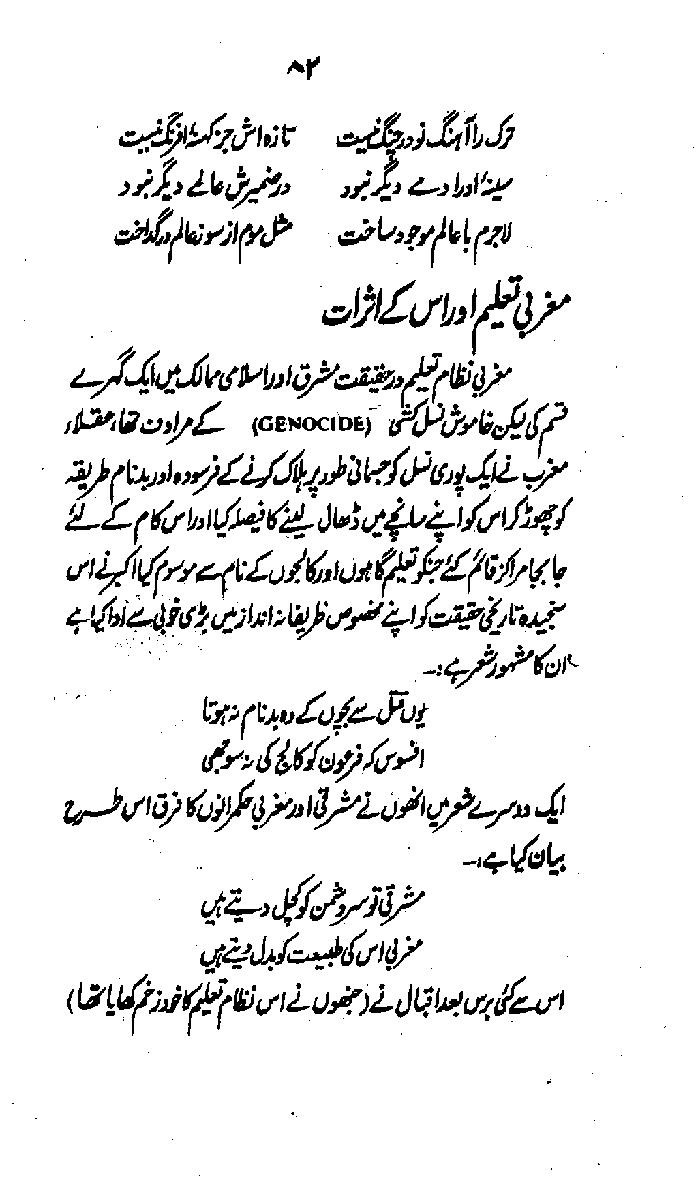 ۸۲
ترک را آہنگ نو در چنگ نیست تازہ اش جز کہنۂ افرنگ نیست
سینۂ او را دمے دیگر نبود در ضمیرش عالمے دیگر نبود
لاجرم با عالم موجود ساخت مثل موم از سوز عالم در گداخت
مغربی تعلیم اور اس کے اثرات
مغربی نظام تعلیم درحقیقت مشرق اور اسلامی ممالک میں ایک گہرے
قسم کی لیکن خاموش نسل کشی (GENOCIDE) کے مرادف تھا، عقلاء
مغرب نے ایک پوری نسل کو جسمانی طور پر ہلاک کرنے کے فرسودہ اور بدنام طریقہ
کو چھوڑ کر اس کو اپنے سانچے میں ڈھال لینے کا فیصلہ کیا اور اس کام کے لئے
جا بجا مراکز قائم کئے جنکو تعلیم گاہوں اور کالجوں کے نام سے موسوم کیا اکبر نے اس
سنجیدہ تاریخی حقیقت کو اپنے مخصوص ظریفانہ انداز میں بڑی خوبی سے ادا کیا ہے
ان کا مشہور شعر ہے:۔
یوں قتل سے بچوں کے وہ بدنام نہ ہوتا
افسوس کہ فرعون کو کالج کی نہ سوجھی
ایک دوسرے شعر میں انھوں نے مشرقی اور مغربی حکمرانوں کا فرق اس طرح
بیان کیا ہے:۔
مشرقی تو سر دشمن کو کچل دیتے ہیں
مغربی اس کی طبیعت کو بدل دیتے ہیں
اس سے کئی برس بعد اقبال نے (جنھوں نے اس نظام تعلیم کا خود زخم کھایا تھا)